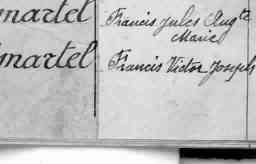 martel Francis Jules Augte
Marie
martel Francis Victor Joseph